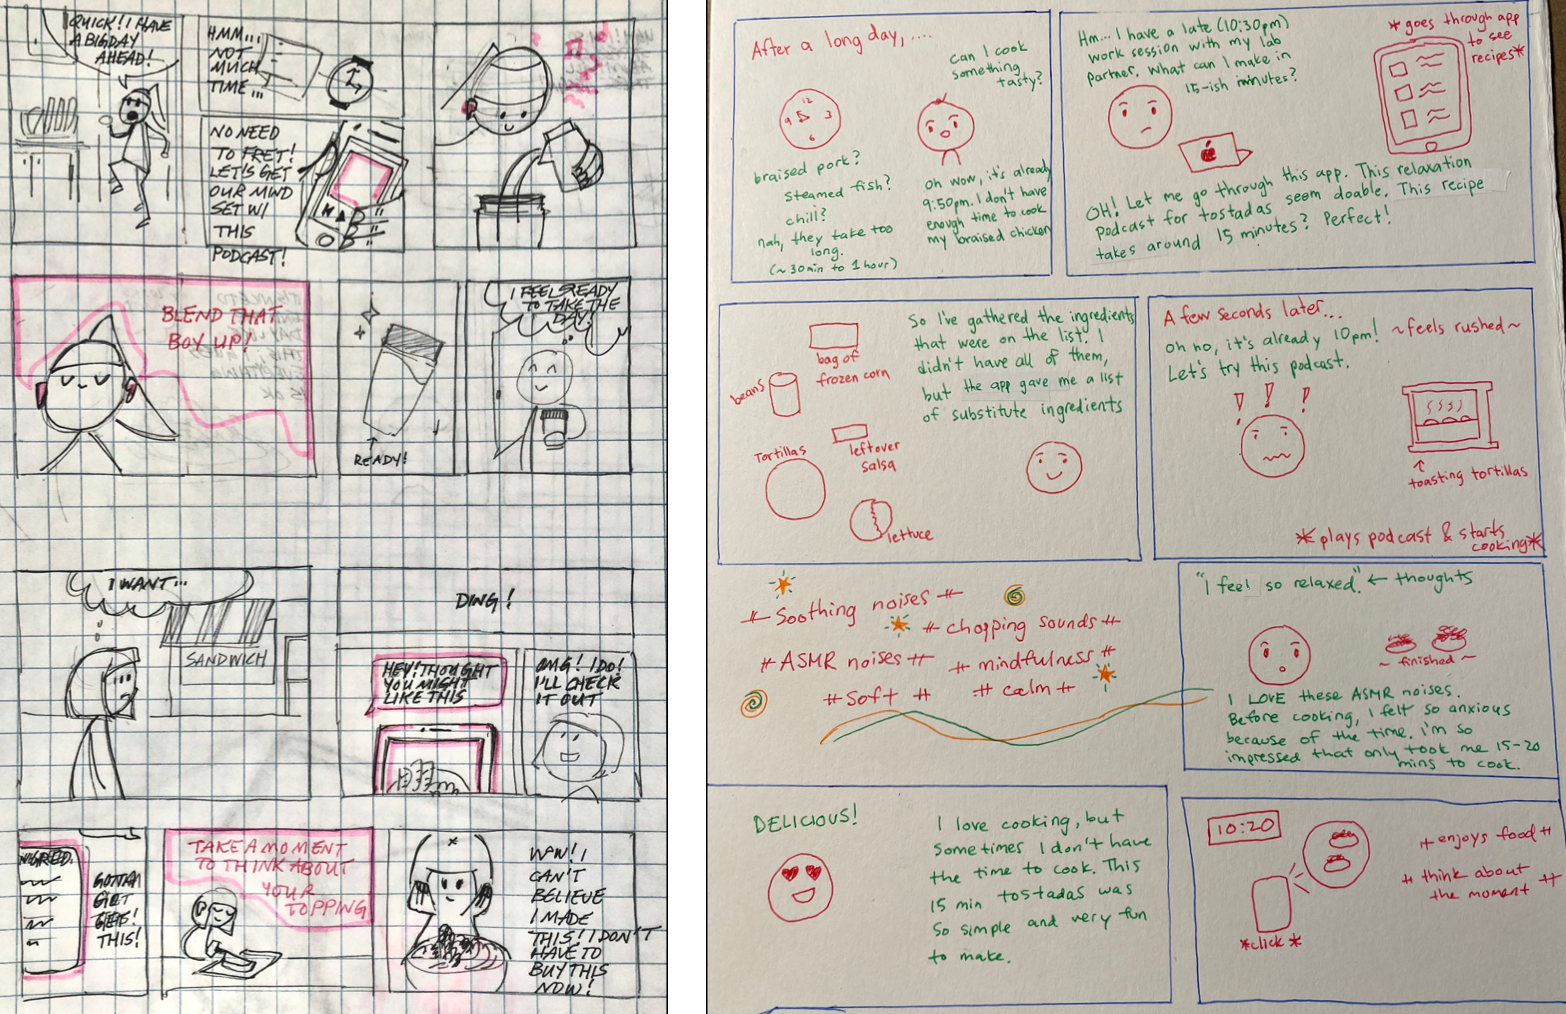 QUICK! I HAVE
A BIG DAY
AHEAD!
HMM...
NOT
MUCH
TIME...
NO NEED
TO FRET!
LET'S GET
OUR MIND
SET W/
THIS
PODCAST!
BLEND THAT
BOY UP!
READY!
I FEEL READY
TO TAKE THE
DAY!
I WANT...
SANDWICH
DING!
HEY! THOUGHT
YOU MIGHT
LIKE THIS
OMG! I DO!
I'LL CHECK
IT OUT
INGRED.
GOTTA
GET
THIS!
TAKE A MOMENT
TO THINK ABOUT
YOUR
TOPPING
WOW! I
CAN'T
BELIEVE
I MADE
THIS! I DON'T
HAVE TO
BUY THIS
NOW!
After a long day,....
can I cook
something
tasty?
12
9 3
6
braised pork?
steamed fish?
chili?
nah, they take too
long.
(~30min to 1 hour)
oh wow, it's already
9:50pm. I don't have
enough time to cook
my braised chicken
Hm... I have a late (10:30pm)
work session with my lab
partner. What can I make in
15-ish minutes?
*goes through app
to see
recipes*
OH! Let me go through this app. This relaxation
podcast for tostadas seem doable. This recipe
takes around 15 minutes? Perfect!
bag of
frozen corn
beans
Tortillas
leftover
salsa
lettuce
So I've gathered the ingredients
that were on the list. I
didn't have all of them,
but the app gave me a list
of substitute ingredients
A few seconds later...
oh no, it's already 10pm! ~feels rushed~
Let's try this podcast.
! ! !
toasting tortillas
*plays podcast & starts
cooking*
# Soothing noises #
# chopping sounds #
# ASMR noises #
# mindfulness #
# Soft #
# calm #
"I feel so relaxed." ← thoughts
~ finished ~
I LOVE these ASMR noises.
Before cooking, I felt so anxious
because of the time. i'm so
impressed that only took me 15-20
mins to cook.
DELICIOUS!
I love cooking, but
sometimes I don't have
the time to cook. This
15 min tostadas was
so simple and very fun
to make.
10:20
*click*
# enjoys food #
# think about
the moment #